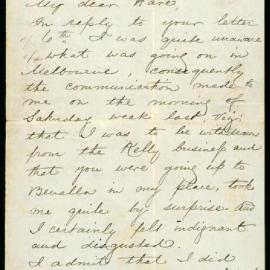 My dear Hare,
In reply to your letter
of 6th I was quite unaware
of what was going on in
Melbourne, consequently
the communication made to
me on the morning of
Saturday week last viz:
that I was to be withdrawn
from the Kelly business and
that you were going up to
Benalla in my place, took
me quite by surprise and
I certainly felt indignant
and disgusted.
I admit that I did